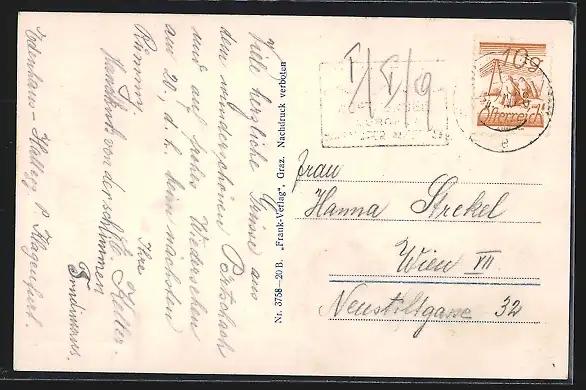 Viele herzliche Grüsse aus
dem wunderschönen Pörtschach
und auf frohes Wiedersehen
am 20. d. h. beim nächsten
Rummy.
Ihre
Keller.
Handkuß von der schlimmen
Edenhaus - Hallegg P. Klagenfurt.
Nr. 3758-20 B. „Frank-Verlag“, Graz. Nachdruck verboten
I/I/9
10g
Österreich
e
Frau
Hanna Strekel
Wien VII
Neustiftgasse 32